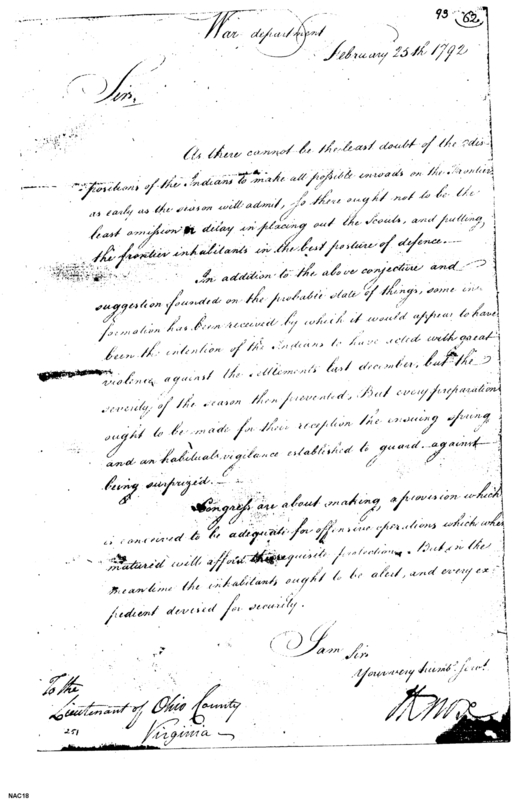 93 62
War department
February 25th 1792
Sir,
As there cannot be the least doubt of the dis-
positions of the Indians to make all possible inroads on the Frontiers
as early as the season will admit, so there ought not to be the
least omission or delay in placing out the Scouts, and putting
the frontier inhabitants in the best posture of defence.—
In addition to the above conjecture and
suggestion founded on the probable state of things, some in-
formation has been received by which it would appear to have
been the intention of the Indians to have acted with great
violence against the settlements last december, but the
severity of the season then prevented. But every preparation
ought to be made for their reception the ensuing spring
and an habitual vigilance established to guard against
being surprized.—
Congress are about making a provision which
is conceived to be adequate for offensive operations which when
matured will afford the requisite protection. But in the
meantime the inhabitants ought to be alert, and every ex-
pedient devised for security.
I am Sir
Your very humb. Servt.
HKnox
To the
Lieutenant of Ohio County
Virginia—
251
NAC18